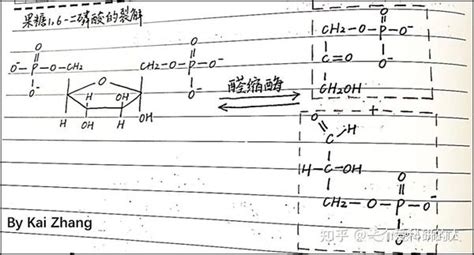 果糖1,6-二磷酸的裂解
O O
O⁻-P-O-CH₂ CH₂-O-P-O⁻
O⁻ O O⁻
H OH
H OH H OH
醛缩酶
O
CH₂-O-P-O⁻
C=O O⁻
CH₂OH
+
O H
C
H-C-OH
O
CH₂-O-P-O⁻
O⁻
By Kai Zhang
知乎